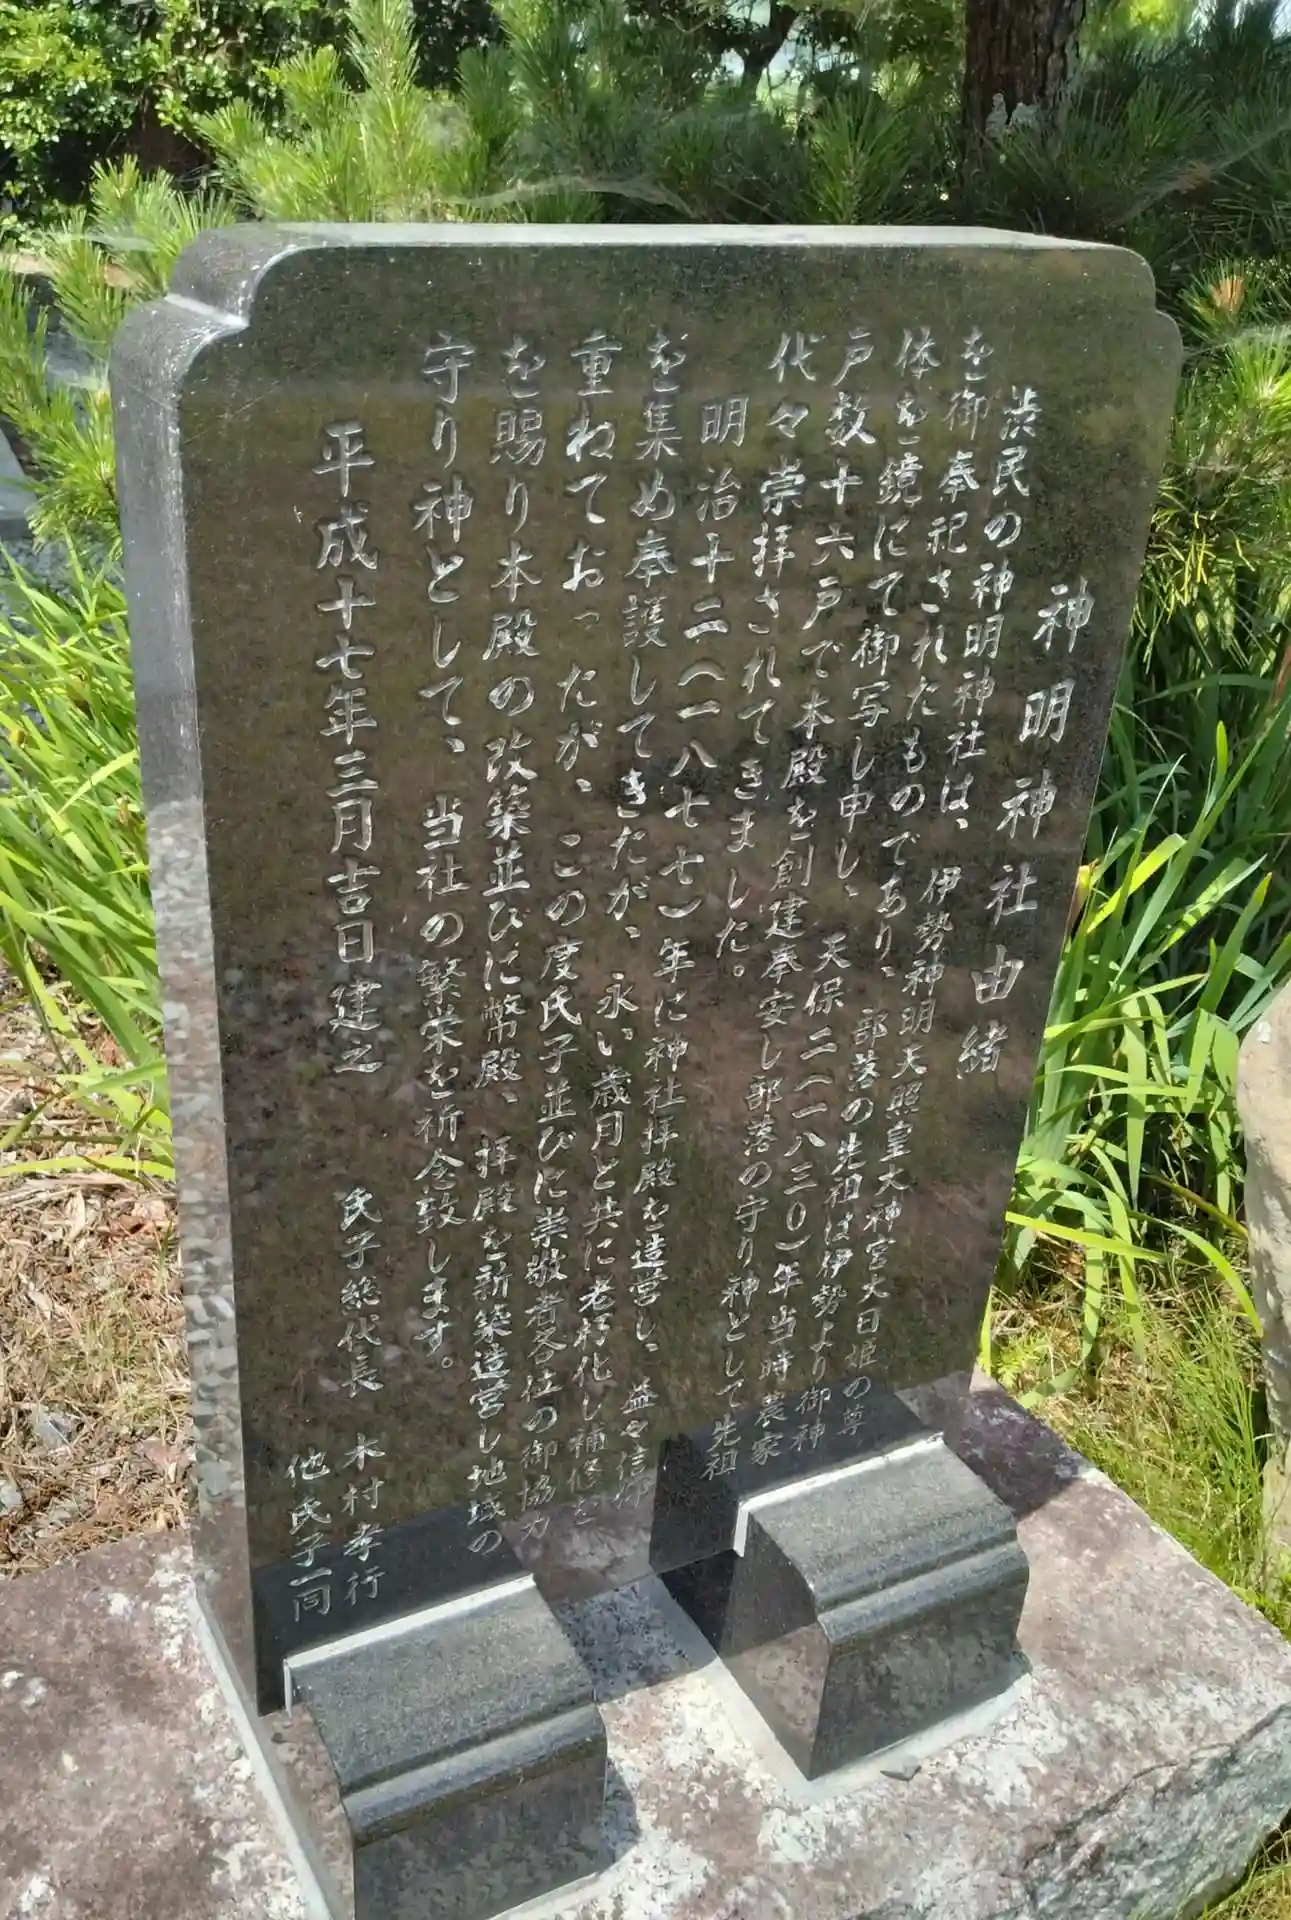 神明神社由緒
渋民の神明神社は、伊勢神明天照皇大神宮大日姫の尊
を御奉祀されたものであり、部落の先祖は伊勢より御神
体を鏡にて御写し申し、天保二(一八三〇)年当時農家
戸数十六戸で本殿を創建奉安し部落の守り神として先祖
代々崇拝されてきました。
明治十二(一八七七)年に神社拝殿を造営し、益々信仰
を集め奉護してきたが、永い歳月と共に老朽化し補修を
重ねておったが、この度氏子並びに崇敬者各位の御協力
を賜り本殿の改築並びに幣殿、拝殿を新築造営し地域の
守り神として、当社の繁栄を祈念致します。
平成十七年三月吉日建之
氏子総代長 木村孝行
他氏子一同